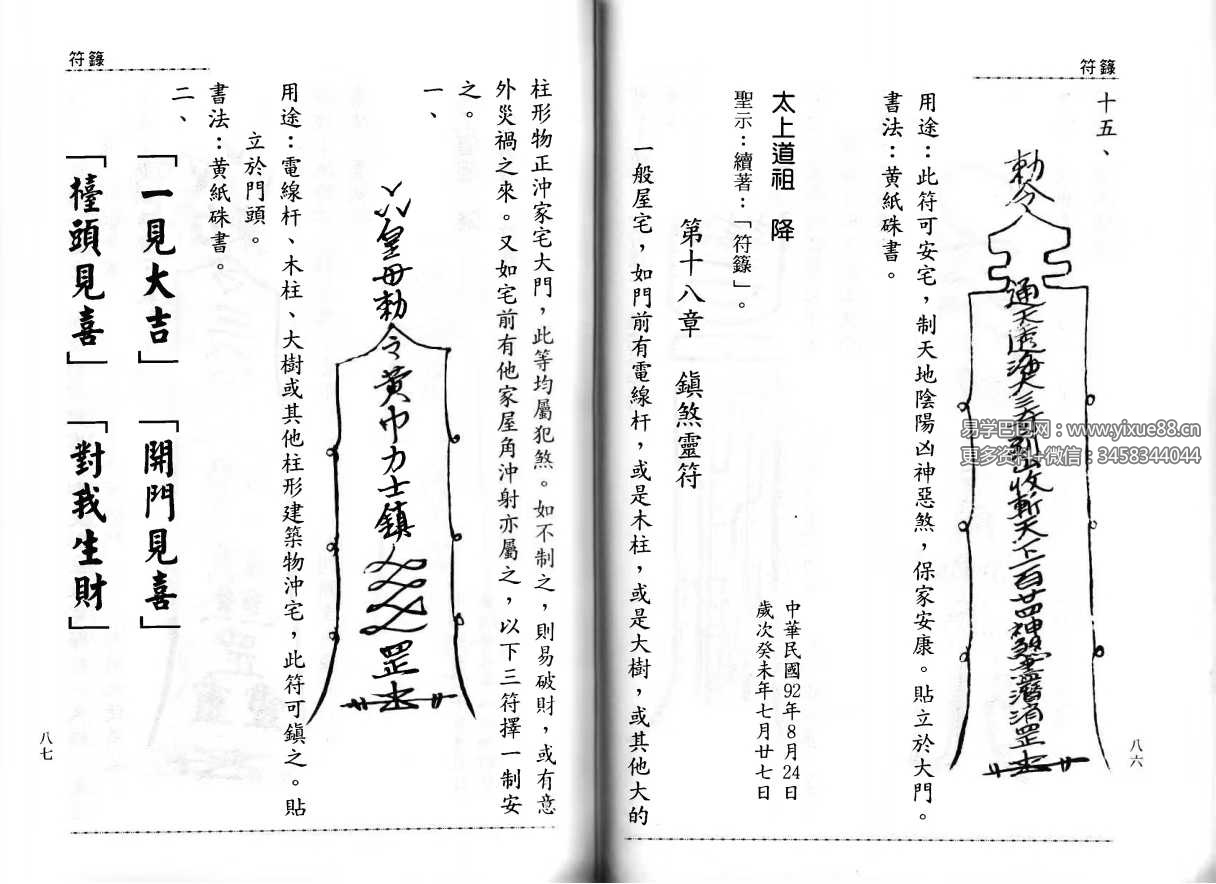 符籙
十五、
勅令
通天透
收斬天下一百廿四神煞
消罡
用途：此符可安宅，制天地陰陽凶神惡煞，保家安康。貼立於大門。
書法：黃紙硃書。
八六
太上道祖 降
聖示：續著：「符籙」。
中華民國92年8月24日
歲次癸未年七月廿七日
第十八章 鎮煞靈符
一般屋宅，如門前有電線杆，或是木柱，或是大樹，或其他大的
符籙
柱形物正沖家宅大門，此等均屬犯煞。如不制之，則易破財，或有意
外災禍之來。又如宅前有他家屋角沖射亦屬之，以下三符擇一制安
之。
一、
皇母勅令黃巾力士鎮
罡
用途：電線杆、木柱、大樹或其他柱形建築物沖宅，此符可鎮之。貼
立於門頭。
書法：黃紙硃書。
二、
「一見大吉」「開門見喜」
「檯頭見喜」「對我生財」
八七
易学巴巴网：www.yixue88.cn
更多资料+微信：3458344044